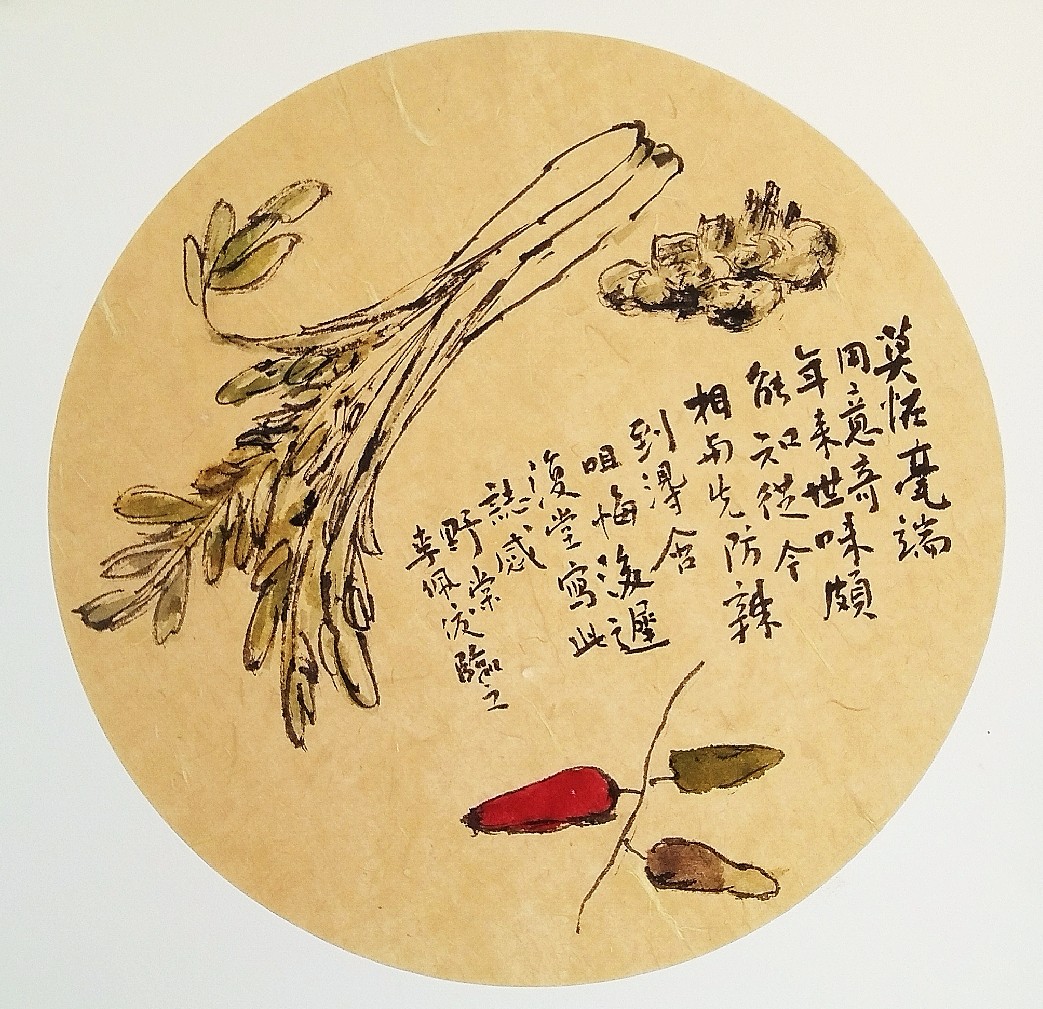 莫怪毫端
用意奇
年来世味頗
能知從今
相与先防辣
到得含
咀悔後遲
復堂寫此
誌感
野棠
臨之